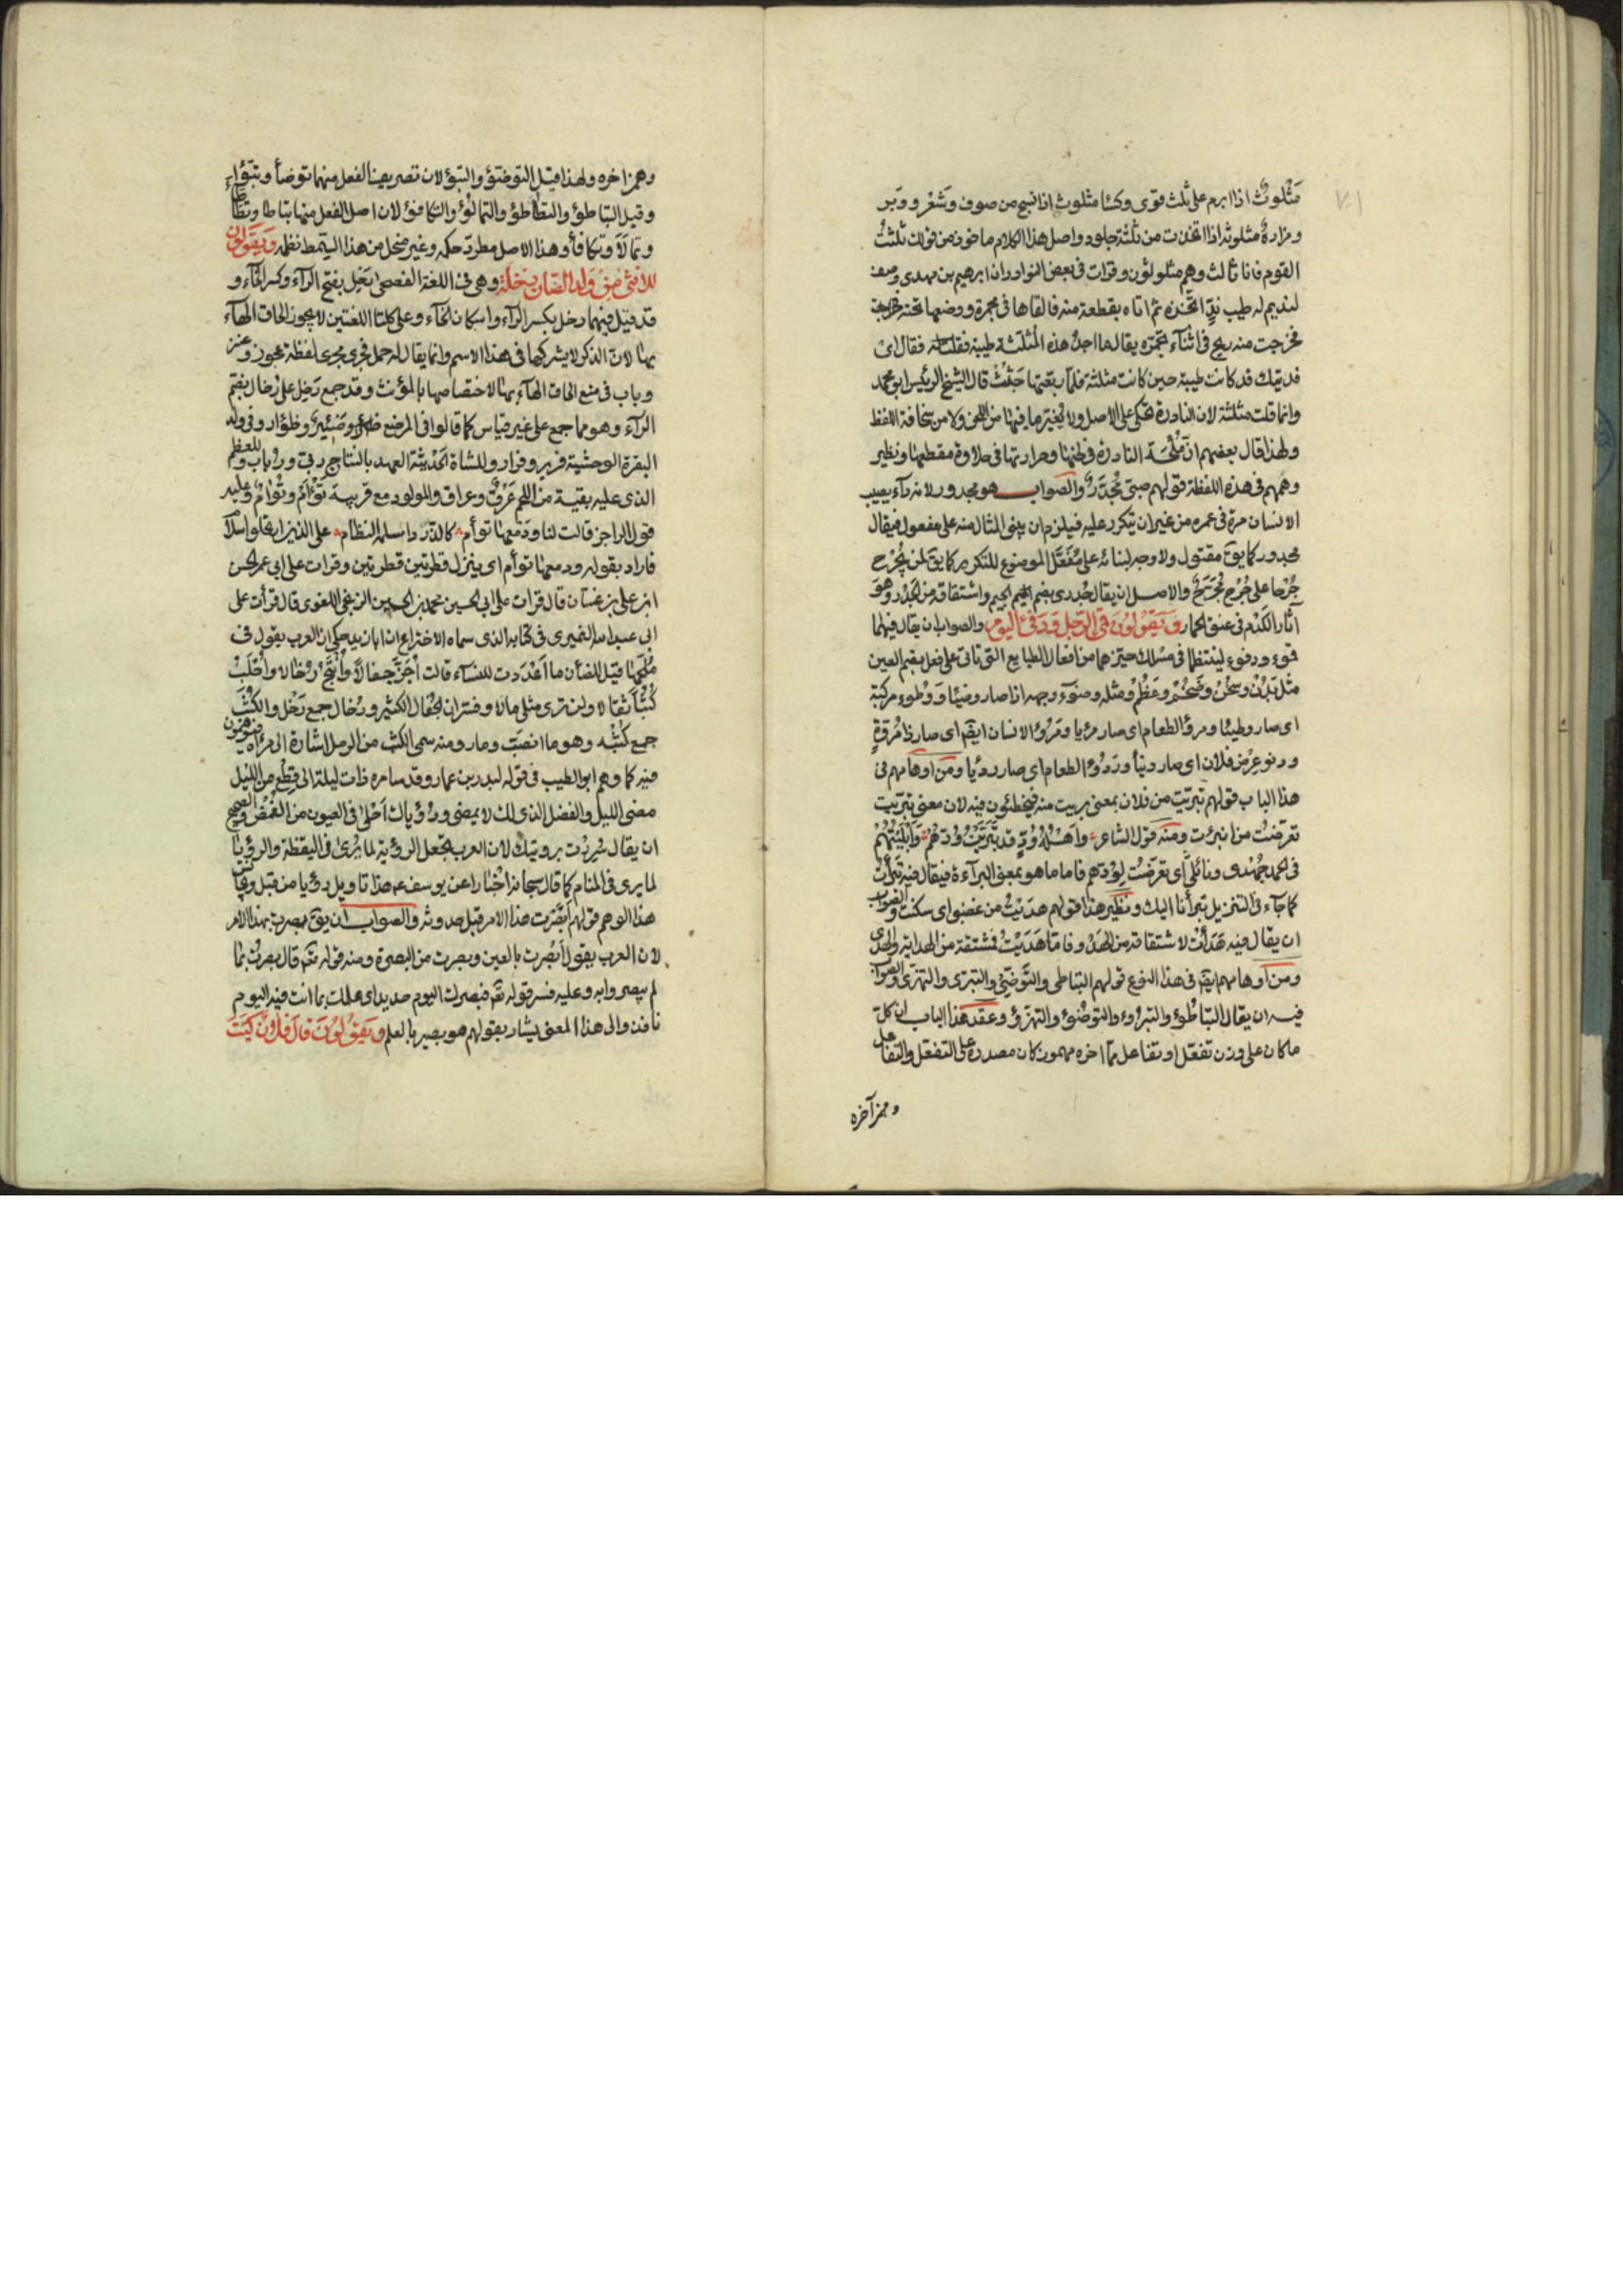 مَثْلوثٌ اذا ابرم على ثلث قوى وكسَا مثلوث اذا نسج من صوف وشَعْر ووَبر
ومزادةٌ مثلوثه اذا اتخذت من ثلثة جلود واصل هذا الكلام ماخوذ من قولك ثلثتُ
القوم فانا ثالث وهم مثلوثون وقرات فى بعض النوادر ان ابرهيم بن مهدى وصف
لنديم له طيب ندٍّ اتّخذه ثم اتاه بقطعة منه فالقاها فى مجمرة ووضعها تحته
فخرجت منه ريح فى اثناء تجمّره يقال ما اجد هذه المثلثة طيبة فقلت له فقال اىْ
فديتك قد كانت طيبة حين كانت مثلثة فلمّا ربّعتها خَبُثَتْ قال الشيخ الرئيس ابو محمد
وانما قلت مثلثة لان النادرة تحكى على الاصل ولا يُغيّر ما فيها من اللحن ولا من سخافة اللفظ
ولهذا قال بعضهم انّ مُلْحَة النادرة فى لحنها وحرارتها فى حلاوة مقطعها ونظير
وهمهم فى هذه اللفظة قولهم صبىّ مُجدَّرٌ والصواب هو مجدور لانه دآء يصيب
الانسان مرة فى عمره من غير ان يتكرر عليه فيلزم ان يبنى المثال منه على مفعول فيقال
مجدور كما يقَ مقتول ولا وجه لبنائه على مُفَعَّل الموضوع للتكرير كما يقَ لمن يُجْرَح
جُرْحا على جُرْح مُجَرَّحٌ والاصل ان يقال جُدرى بضم الجيم واشتقاقه من الجَدْر وهو
آثار الكَدْم فى عنق الحمار وَيَقُولُونَ قَمِىَ الرَّجُل وَدَفِئَ اليوم والصواب ان يقال فيهما
قموء ودفوء لينتظما فى مسلك حيزهما من افعال الطبايع التى تاتى على فعل بضم العين
مثل بَدُنَ وسَخُنَ وضَخُمَ وعَظُمَ ومثله وضوء وجهه اذا صار وضيئا ووَطوء مركبه
اى صار وطيئا ومرؤ الطعام اى صار مريا ومَرؤ الانسان ايضَ اى صار ذا مُرُوّةٍ
ودنوء عِرْض فلان اى صار دنيأ ورَدُؤ الطعام اى صار رديا ومن اوهامهم فى
هذا الباب قولهم تبرّيت من فلان بمعنى بريت منه فيخطئون فيه لان معنى تبرّيت
تعرّضت من انبريت ومنه قول الشاعر وأهْلةِ وُدٍّ قد تَبَرَّيْتُ وُدّهُمْ وأَبْلَيْتُهُمُ
فى الحمد جُهْدى ونائلى اى تعرّضت لوُدّهم فاما ما هو بمعنى البرآءة فيقال فيه تبرأت
كما جآء فى التنزيل تبرأنا اليك ونظير هذا قولهم هدَيْتُ من غضبى اى سكنت والصواب
ان يقال فيه هَدَأتُ لاشتقاقه من الهدُوء فامّا هَدَيْتُ فمشتقة من الهداية والهدى
ومن اوهامهم ايضَ فى هذا النوع قولهم التباطى والتَّوضّى والتبرّى والتهزّى والصواب
فيه ان يقال التباطُؤ والتبرّؤ والتوضّؤ والتهزّؤ وعقد هذا الباب ان كل
ما كان على وزن تفعّل او تفاعل ممّا آخره مهموز كان مصدره على التفعّل والتفاعل
وهمز آخره
وهمز اخره ولهذا قيل التوضّؤ والتبوّؤ لان تصريف الفعل منهما توضأ وتبوّأ
وقيل التباطؤ والتطأطؤ والتمالؤ والتكافؤ لان اصل الفعل منها تباطا وتطأطأ
وتمالأ وتكافأ وهذا الاصل مطرد حكمه وغير منحل من هذا السمط نظمه وَيَقُولُونَ
للانثى مِنْ وَلَد الضّأن رِخلة وهى فى اللغة الفصحى رَخِل بفتح الرآء وكسر الخآء و
قد قيل فيها رِخل بكسر الرآء واسكان الخآء وعلى كلتا اللغتين لا يجوز الحاق الهآء
بها لانّ الذكر لا يشركها فى هذا الاسم وانما يقال له حمل فجرى مجرى لفظة عجوز وعنز
وباب فى منع الحاق الهآء بها لاختصاصها بالمؤنث وقد جمع رَخِل على رُخال بضم
الرآء وهو مما جمع على غير قياس كما قالوا فى المرضع ظئر وظؤار وفى ولد
البقرة الوحشية فرير وفرار وللشاة الحديثة العهد بالنتاج ربّى ورُباب وللعظم
الذى عليه بقية من اللحم عَرْقٌ وعراق والمولود مع قرينه تَوْأَم وتُؤام وعليه
قول الراجز قالت لنا ودمعها تؤام كالدُّر اذ اسلمه النظام على الذين ارتحلوا السلام
فاراد بقوله ودمعها تؤام اى ينزل قطرتين قطرتين وقرات على ابى عمر الحسن
ابن على بن غسان قال قرات على ابى الحسين محمد بن الحسين الزنجى اللغوى قال قرأت على
ابى عبد الله النميرى فى كتابه الذى سماه الاختراع ان ابا زيد حكى ان العرب يقول فى
مُلَحها قيل للضأن ما اعْدَدت للشتآء قالت أُجَزُّ جُفالا وأُنتَجُ رُخالا وأُحْلَبُ
كُثَبا ثقالا ولن ترى مثلى مالا وفسّر ان الجُفال الكثير ورُخال جمع رَخِل والكُثَب
جمع كُثْبه وهو ما انصبّ ومار ومنه سمى الكثب من الرمل
فيه كما وهم ابو الطيب فى قوله لبدر بن عمار وقد سامره ذات ليلة الى قِطْع من الليل
مضى الليل والفضل الذى لك لا يمضى ورُؤْياك أحْلى فى العيون من الغُمْض والصحيح
ان يقال سُررت برويتك لان العرب تجعل الرؤية لما يُرى فى اليقظة والرؤيا
لما يرى فى المنام كما قال سبحانه اخبارا عن يوسف عم هذا تاويل رؤياى من قبل
هذا الوهم قولهم ابْصَرت هذا الامر قبل حدوثه والصواب ان يقَ بصرت بهذا الامر
لان العرب يقول أَبْصَرت بالعين وبصرت من البصيرة ومنه قوله تعَ قال بصرت بما
لم يبصروا به وعليه فسر قوله تعَ فبصرك اليوم حديد اى علمك بما انت فيه اليوم
نافذ والى هذا المعنى يشار بقولهم هو بصير بالعلم وَيَقُولُونَ قالَ فُلانٌ كَيْتَ